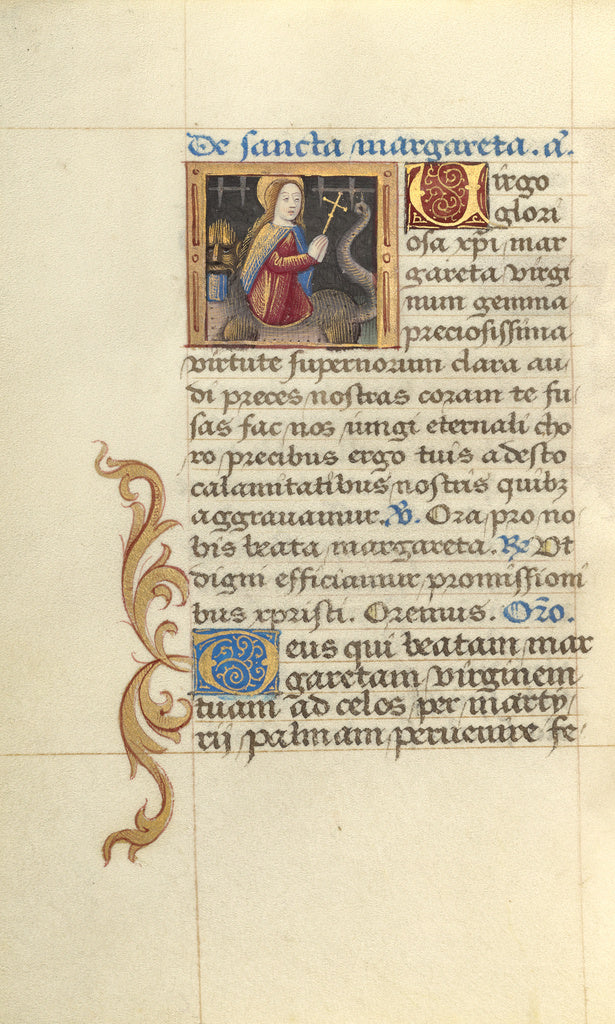 De sancta margareta. a.
Virgo
glori
osa xpi mar
gareta virgi
num gemma
preciosissima
virtute supernorum clara au
di preces nostras coram te fu
sas fac nos iungi eternali cho
ro precibus ergo tuis adesto
calamitatibus nostris quibz
aggrauamur. V. Ora pro no
bis beata margareta. Re Vt
digni efficiamur promissioni
bus xpristi. Oremus. Oro.
Deus qui beatam mar
garetam virginem
tuam ad celos per marty
rij palmam peruenire fe